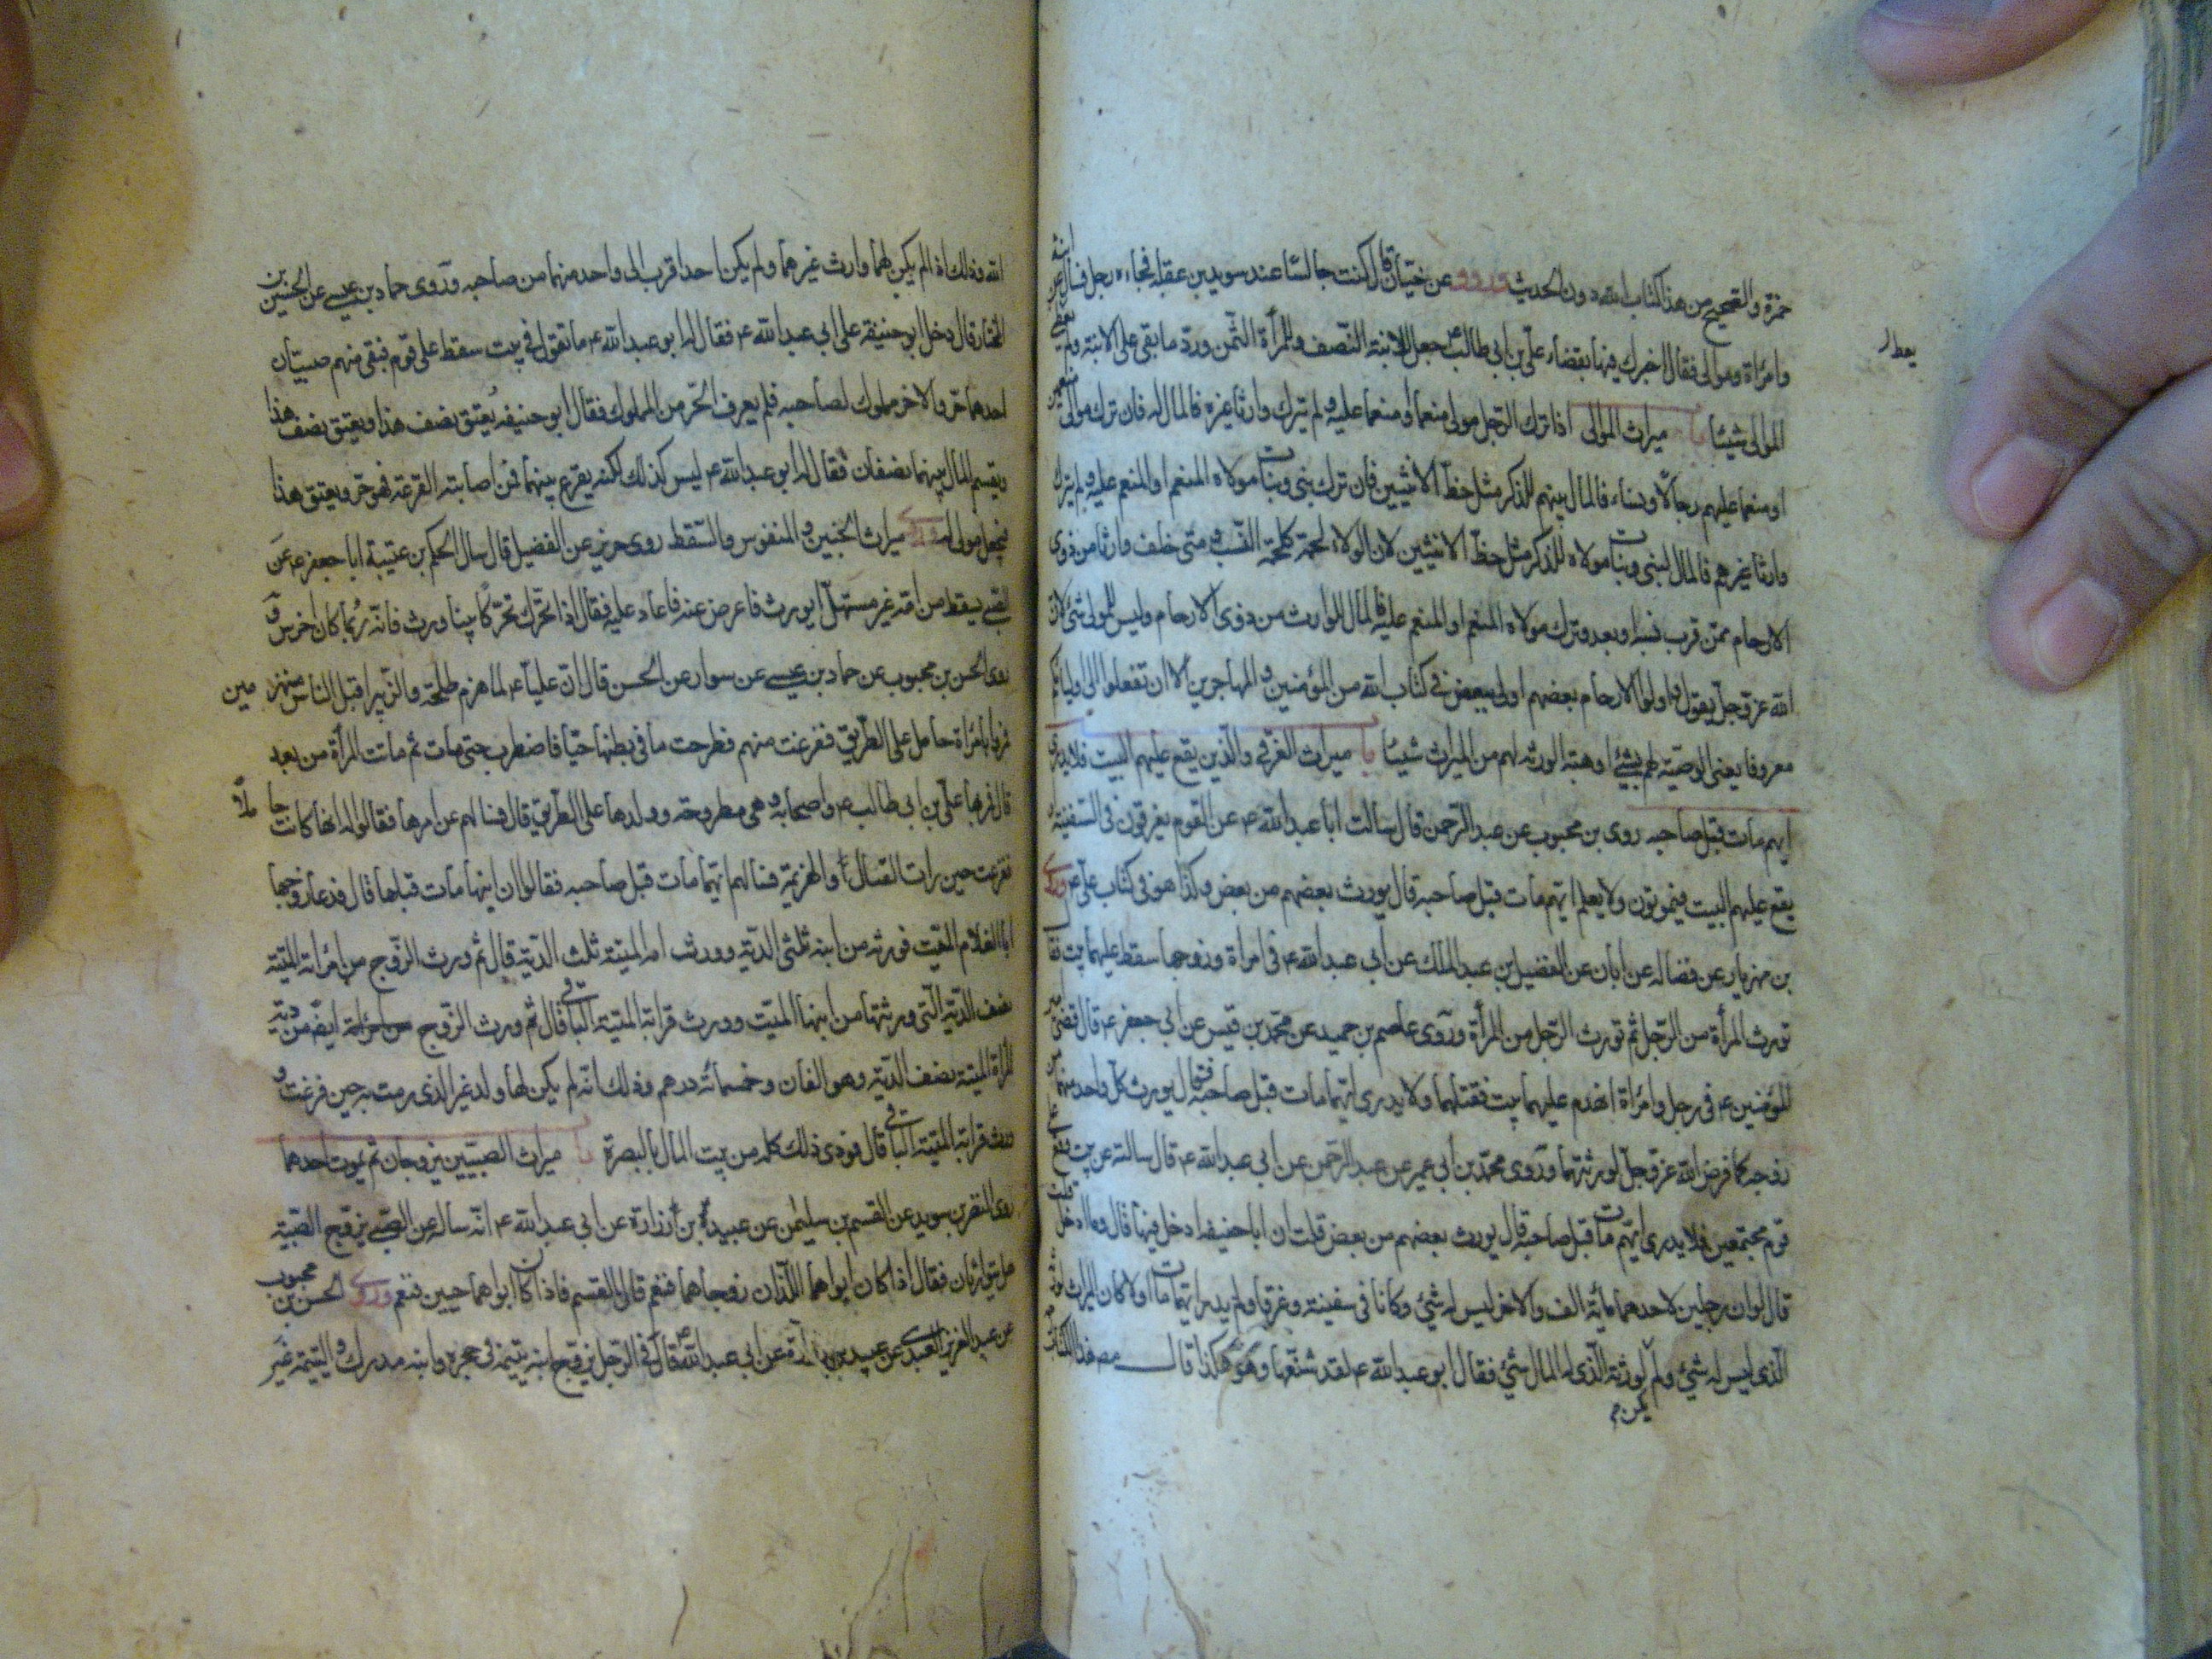 حمزة والصحيح من هذا كتاب الله دون الحديث وروى عن حيان قال كنت جالسا عند سويد بن عقلة فجاءه رجل فسأل عن ابنة
وامرأة وموالى فقال اخبرك فيها بقضاء علي بن ابي طالب ع جعل للابنة النصف وللمرأة الثمن وردّ ما بقى على الابنة ولم يعط
الموالى شيئا باب ميراث الموالى اذا ترك الرجل مولى منعما او منعما عليه ولم يترك وارثا غيره فالمال له فان ترك موالى منعمين
او منعما عليهم رجالا ونساء فالمال بينهم للذكر مثل حظ الانثيين فان ترك بنى وبنات مولاه المنعم او المنعم عليه ولم يترك
وارثا غيرهم فالمال لبنى وبنات مولاه للذكر مثل حظ الانثيين لان الولاء لحمة كلحمة النسب ومتى خلف وارثا من ذوى
الارحام ممن قرب نسبه او بعد وترك مولاه المنعم او المنعم عليه فالمال للوارث من ذوى الارحام وليس للمولى شئ لان
الله عز وجل يقول واولوا الارحام بعضهم اولى ببعض في كتاب الله من المؤمنين والمهاجرين الا ان تفعلوا الى اوليائكم
معروفا يعنى الوصية لهم بشئ او هبة الورثة لهم من الميراث شيئا باب ميراث الغرقى والذين يقع عليهم البيت فلا يدرى
ايهم مات قبل صاحبه روى بن محبوب عن عبد الرحمن قال سالت ابا عبد الله ع عن القوم يغرقون في السفينة او
يقع عليهم البيت فيموتون ولا يعلم ايهم مات قبل صاحبه قال يورث بعضهم من بعض وكذا هو في كتاب علي ع وروى
بن مهزيار عن فضالة عن ابان عن الفضيل بن عبد الملك عن ابي عبد الله ع في امرأة وزوجها سقط عليهما بيت فقال
تورث المرأة من الرجل ثم تورث الرجل من المرأة وروى عاصم بن حميد عن محمد بن قيس عن ابي جعفر ع قال قضى امير
المؤمنين ع في رجل وامرأة انهدم عليهما بيت فقتلهما ولا يدرى ايهما مات قبل صاحبه فقال يورث كل واحد منهما من
زوجه كما فرض الله عز وجل لورثتهما وروى محمد بن ابي عمير عن عبد الرحمن عن ابي عبد الله ع قال سالته عن بيت وقع على
قوم مجتمعين فلا يدرى ايهم مات قبل صاحبه قال يورث بعضهم من بعض قلت ان ابا حنيفة ادخل فيها قال وما ادخل قلت
قال لو ان رجلين لاحدهما مائة الف والاخر ليس له شئ وكانا في سفينة وغرقا ولم يدر ايهما مات اولا كان الميراث لورثة
الذى ليس له شئ ولم يكن لورثة الذى له المال شئ فقال ابو عبد الله ع لقد شنعها وهو هكذا قال مصنف هذا الكتاب
يعط
الله وذلك اذا لم يكن لهما وارث غيرهما ولم يكن احد اقرب الى واحد منهما من صاحبه وروى حماد بن عيسى عن الحسين بن
المختار قال دخل ابو حنيفة على ابي عبد الله ع فقال له ابو عبد الله ع ما تقول في بيت سقط على قوم فبقى منهم صبيان
احدهما حر والاخر مملوك لصاحبه فلم يعرف الحر من المملوك فقال ابو حنيفة يُعتق نصف هذا ويعتق نصف هذا
ويقسم المال بينهما نصفان فقال له ابو عبد الله ع ليس كذلك لكنه يقرع بينهما فمن اصابته القرعة فهو حر ويعتق هذا
فيجعل مولى له باب ميراث الجنين والمنفوس والسقط روى حريز عن الفضيل قال سال الحكم بن عتيبة ابا جعفر ع عن
الصبى يسقط من امه غير مستهل ايورث فاعرض عنه فاعاد عليه فقال اذا تحرك تحركا بينا ورث فانه ربما كان اخرس و
روى الحسن بن محبوب عن حماد بن عيسى عن سوار عن الحسن قال ان عليا ع لما هزم طلحة والزبير اقبل الناس منهزمين
فمروا بامرأة حامل على الطريق ففزعت منهم فطرحت ما في بطنها حيا فاضطرب حتى مات ثم ماتت المرأة من بعد
قال فمر بها علي بن ابي طالب ع واصحابه وهى مطروحة وولدها على الطريق قال فسالهم عن امرها فقالوا له انها كانت حاملاً
ففزعت حين رات القتال والهزيمة فسالهم ايهما مات قبل صاحبه فقالوا ان ابنها مات قبلها قال فدعا زوجها
ابا الغلام الميت فورثه من ابنه ثلثى الدية وورث امه الميتة ثلث الدية قال ثم ورث الزوج من امرأته الميتة
نصف الدية التى ورثتها من ابنها الميت وورث قرابة الميتة الباقى قال ثم ورث الزوج ايضا من دية
المرأة الميتة نصف الدية وهو الفان وخمسمائة درهم وذلك انه لم يكن لها ولد غير الذى رمت به حين فزعت و
ورث قرابة الميتة الباقى قال فودى ذلك كله من بيت المال بالبصرة باب ميراث الصبيين يزوجان ثم يموت احدهما
روى النضر بن سويد عن القسم بن سليمن عن عبيد بن زرارة عن ابي عبد الله ع انه ساله عن الصبى يزوج الصبية
هل يتوارثان فقال اذا كان ابواهما اللذان زوجاهما فنعم قال القسم فاذا كان ابواهما حيين فنعم وروى الحسن بن محبوب
عن عبد العزيز العبدى عن عبيد بن زرارة عن ابي عبد الله ع قال في الرجل يزوج ابنه يتيمة في حجره وابنه مدرك واليتيمة غير